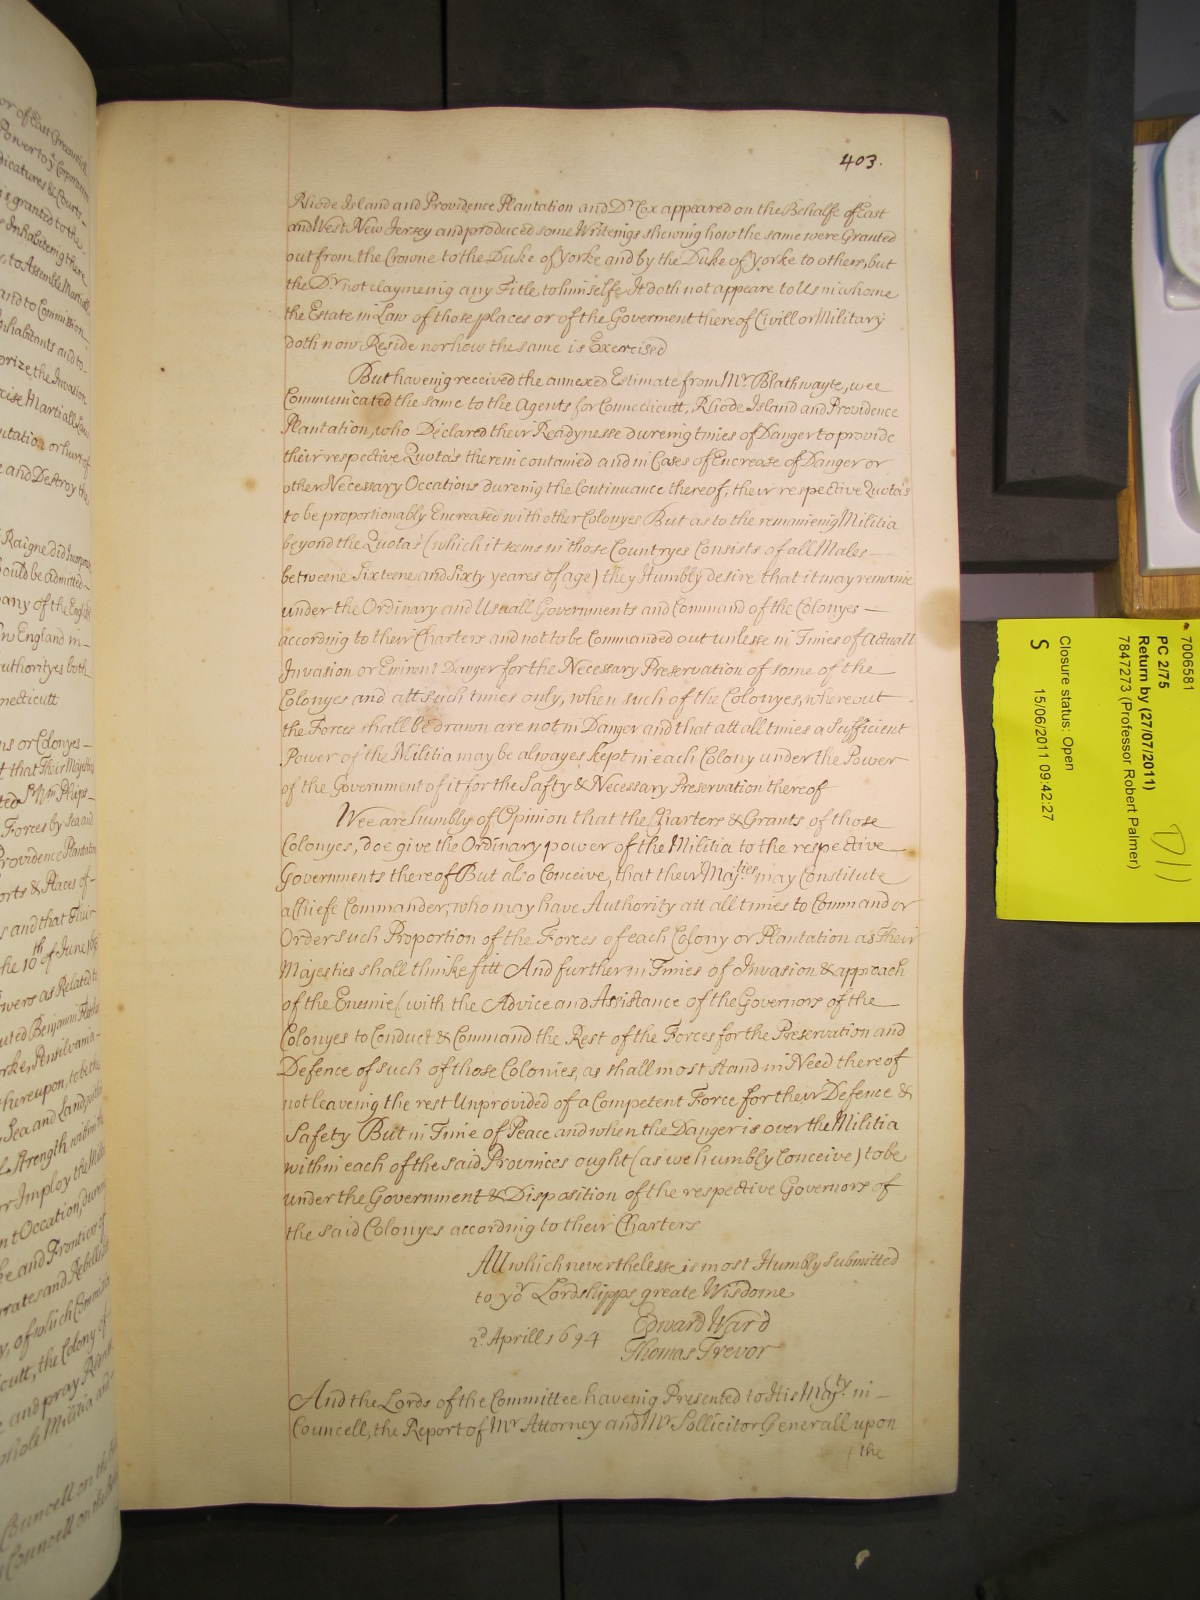 403.
Rhode Island and Providence Plantation and Dr Cox appeared on the Behalfe of East
and West New Jersey and produced some Writeings shewing how the same were Granted
out from the Crowne to the Duke of Yorke and by the Duke of Yorke to others, but
the Dr not claymeing any Title, to himselfe It doth not appeare to Us in whome
the Estate in Law of those places or of the Goverment thereof Civill or Military
doth now Reside nor how the same is Exercised
But haveing received the annexed Estimate from Mr Blathwayte, wee
Communicated the same to the Agents for Connecticutt, Rhode Island and Providence
Plantation, who Declared their Readynesse dureing times of Danger to provide
their respective Quota's therein contained and in Cases of Encrease of Danger or
other Necessary Occations dureing the Continuance thereof, their respective Quota's
to be proportionably Encreased with other Colonyes But as to the remaineing Militia
beyond the Quota's (which it seems in those Countryes Consists of all Males
betweene Sixteene and Sixty yeares of age) they Humbly desire that it may remaine
under the Ordinary and Usuall Governments and Command of the Colonyes
according to their Charters and not to be Commanded out unlesse in Times of Actuall
Invasion or Eminent Danger for the Necessary Preservation of some of the
Colonyes and att such times only, when such of the Colonyes, whereout
the Forces shall be drawn are not in Danger and that att all times a Sufficient
Power of the Militia may be alwayes kept in each Colony under the Power
of the Government of it for the Safty & Necessary Preservation thereof
Wee are humbly of Opinion that the Charters & Grants of those
Colonyes, doe give the Ordinary power of the Militia to the respective
Governments thereof But also Conceive, that their Maties may Constitute
a Chiefe Commander, who may have Authority att all times to Command or
Order such Proportion of the Forces of each Colony or Plantation as Their
Majesties shall thinke fitt And further in Times of Invasion & approach
of the Enemie (with the Advice and Assistance of the Governors of the
Colonyes to Conduct & Command the Rest of the Forces for the Preservation and
Defence of such of those Colonies, as shall most stand in Need thereof
not leaveing the rest Unprovided of a Competent Force for their Defence &
Safety But in Time of Peace and when the Danger is over the Militia
within each of the said Provinces ought (as we humbly Conceive) to be
under the Government & Disposition of the respective Governors of
the said Colonyes according to their Charters
All which neverthelesse is most Humbly submitted
to yor Lordshipps greate Wisdome
2d Aprill 1694 Edward Ward
Thomas Trevor
And the Lords of the Committee haveing Presented to His Maty. in
Councell, the Report of Mr Attorney and Mr Sollicitor Generall upon
/ the
7006581
PC 2/75
Return by (27/07/2011)
7847273 (Professor Robert Palmer)
Closure status: Open
S 15/06/2011 09:42:27